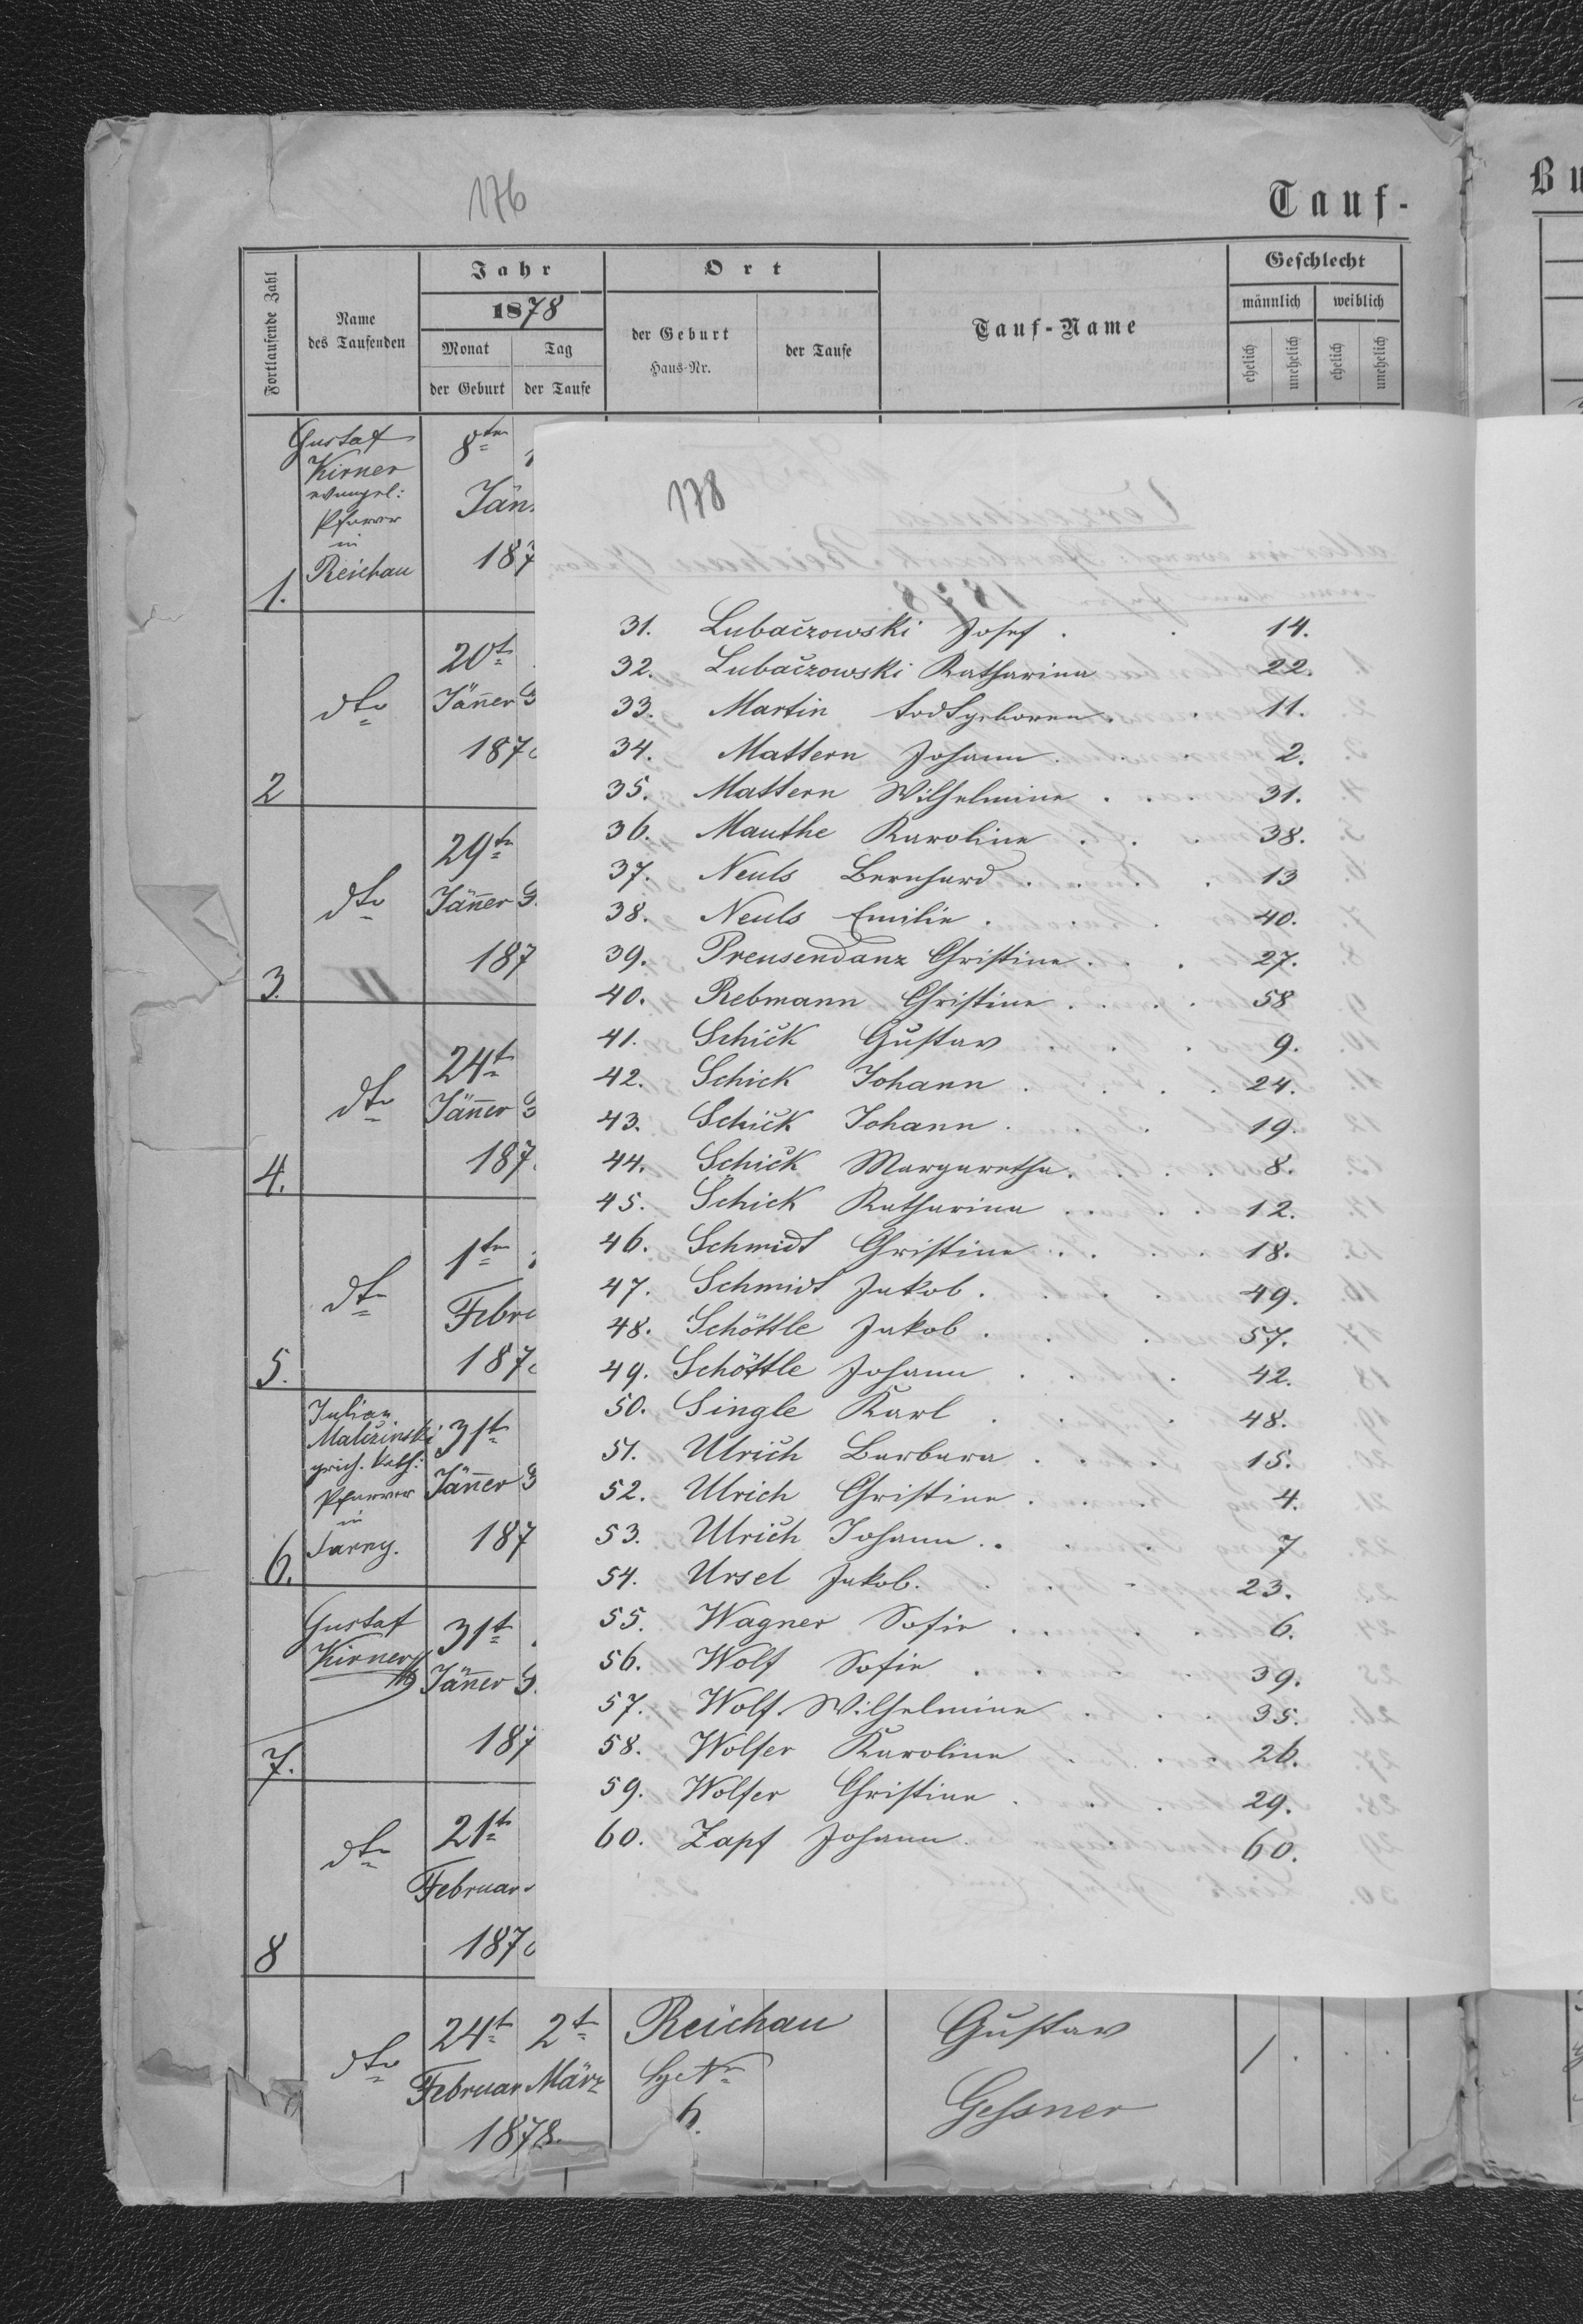 176
Tauf-
Bu
Fortlaufende Zahl
Name des Taufenden
Jahr
1878
Monat
Tag
der Geburt
der Taufe
Ort
der Geburt
Haus-Nr.
der Taufe
Tauf-Name
Geschlecht
männlich
weiblich
ehelich
unehelich
ehelich
unehelich
Gustaf
Kirner
evangel:
Pfarrer
in
Reichau
8te
Jän
187
1.
dto
20t
Jänner
187
2
dto
29te
Jänner
187
3.
dto
24t
Jänner
187
4.
dto
1te
Febr
187
5.
Julian
grich. kath:
Pfarrer
in
31t
Jänner
187
6.
Gustaf
Kirner
31t
Jänner
187
7.
dto
21t
Februar
187
8
178
31. Lubačzowski Josef . . 14.
32. Lubačzowski Katharina 22.
33. Martin todtgeboren . . 11.
34. Mattern Johann . . . 2.
35. Mattern Wilhelmine . . . 31.
36. Mauthe Karoline . . . 38.
37. Neuls Bernhard . . . . 13
38. Neuls Emilie . . . 40.
39. Preusendanz Christine . . . 27.
40. Rebmann Christine . . . . 58
41. Schick Gustav . . . 9.
42. Schick Johann . . . . 24.
43. Schick Johann . . . 19.
44. Schick Margaretha . . . . 8.
45. Schick Katharina . . . . 12.
46. Schmidt Christine . . . 18.
47. Schmidt Jakob . . . . 49.
48. Schöttle Jakob . . . 57.
49. Schöttle Johann . . . 42.
50. Single Karl . . . 48.
51. Ulrich Barbara . . . 15.
52. Ulrich Christine . . . 4.
53. Ulrich Johann . . . 7
54. Ursel Jakob . . . 23.
55. Wagner Sofie . . . . 6.
56. Wolf Sofie . . . . 39.
57. Wolf Wilhelmine . . . 35.
58. Wolfer Karoline . . . 26.
59. Wolfer Christine . . . 29.
60. Zapf Johann . . 60.
dto
24t 2t
Februar März
1878.
Reichau
Hs Nr
6.
Gustav
Gessner
1 . . .